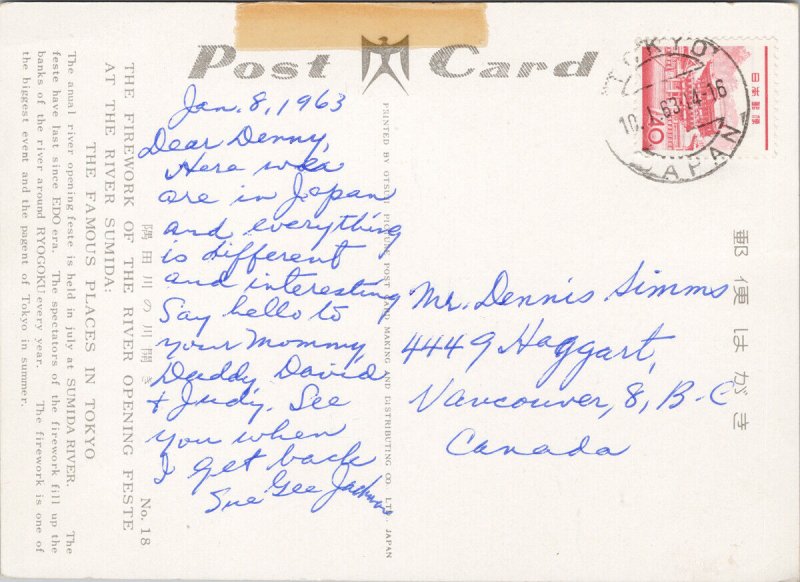 Post Card
TOKYO
10.I.63.14-16
JAPAN
日本郵便
10
郵便はがき
Jan. 8, 1963
Dear Denny,
Here we
are in Japan
and everything
is different
and interesting
Say hello to
your Mommy,
Daddy, David
+ Judy. See
you when
I get back
Sue Gee
Mr. Dennis Simms
4449 Haggart,
Vancouver, 8, B-C
Canada
PRINTED BY OTSUKA PICTURE POST CARD MAKING AND DISTRIBUTING CO. LTD. JAPAN
隅田川の川開き No. 18
THE FIREWORK OF THE RIVER OPENING FESTE
AT THE RIVER SUMIDA.
THE FAMOUS PLACES IN TOKYO
The anual river opening feste is held in july at SUMIDA RIVER. The
feste have last since EDO era. The spectators of the firework fill up the
banks of the river around RYOGOKU every year. The firework is one of
the biggest event and the pagent of Tokyo in summer.